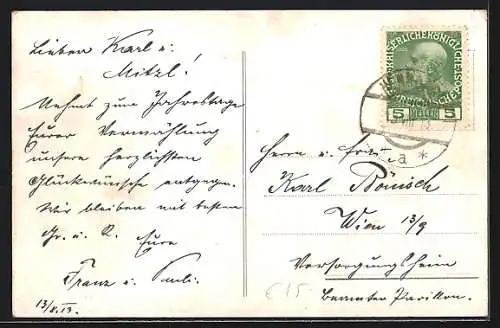 Lieben Karl u:
Mitzl!
Nehmt zum Jahrestage
Eurer Vermählung
unsere herzlichsten
Glückwünsche entgegen.
Wir bleiben mit besten
Gr. u. K. Eure
Franz u.
13/8.13.
KAISERLICHE KÖNIGLICHE
ÖSTERREICHISCHE POST
5 HELLER 5
a *
Herrn u. Frau
Karl Bönisch
Wien 13/9
Versorgungsheim
Beamten Pavillon.
€15-